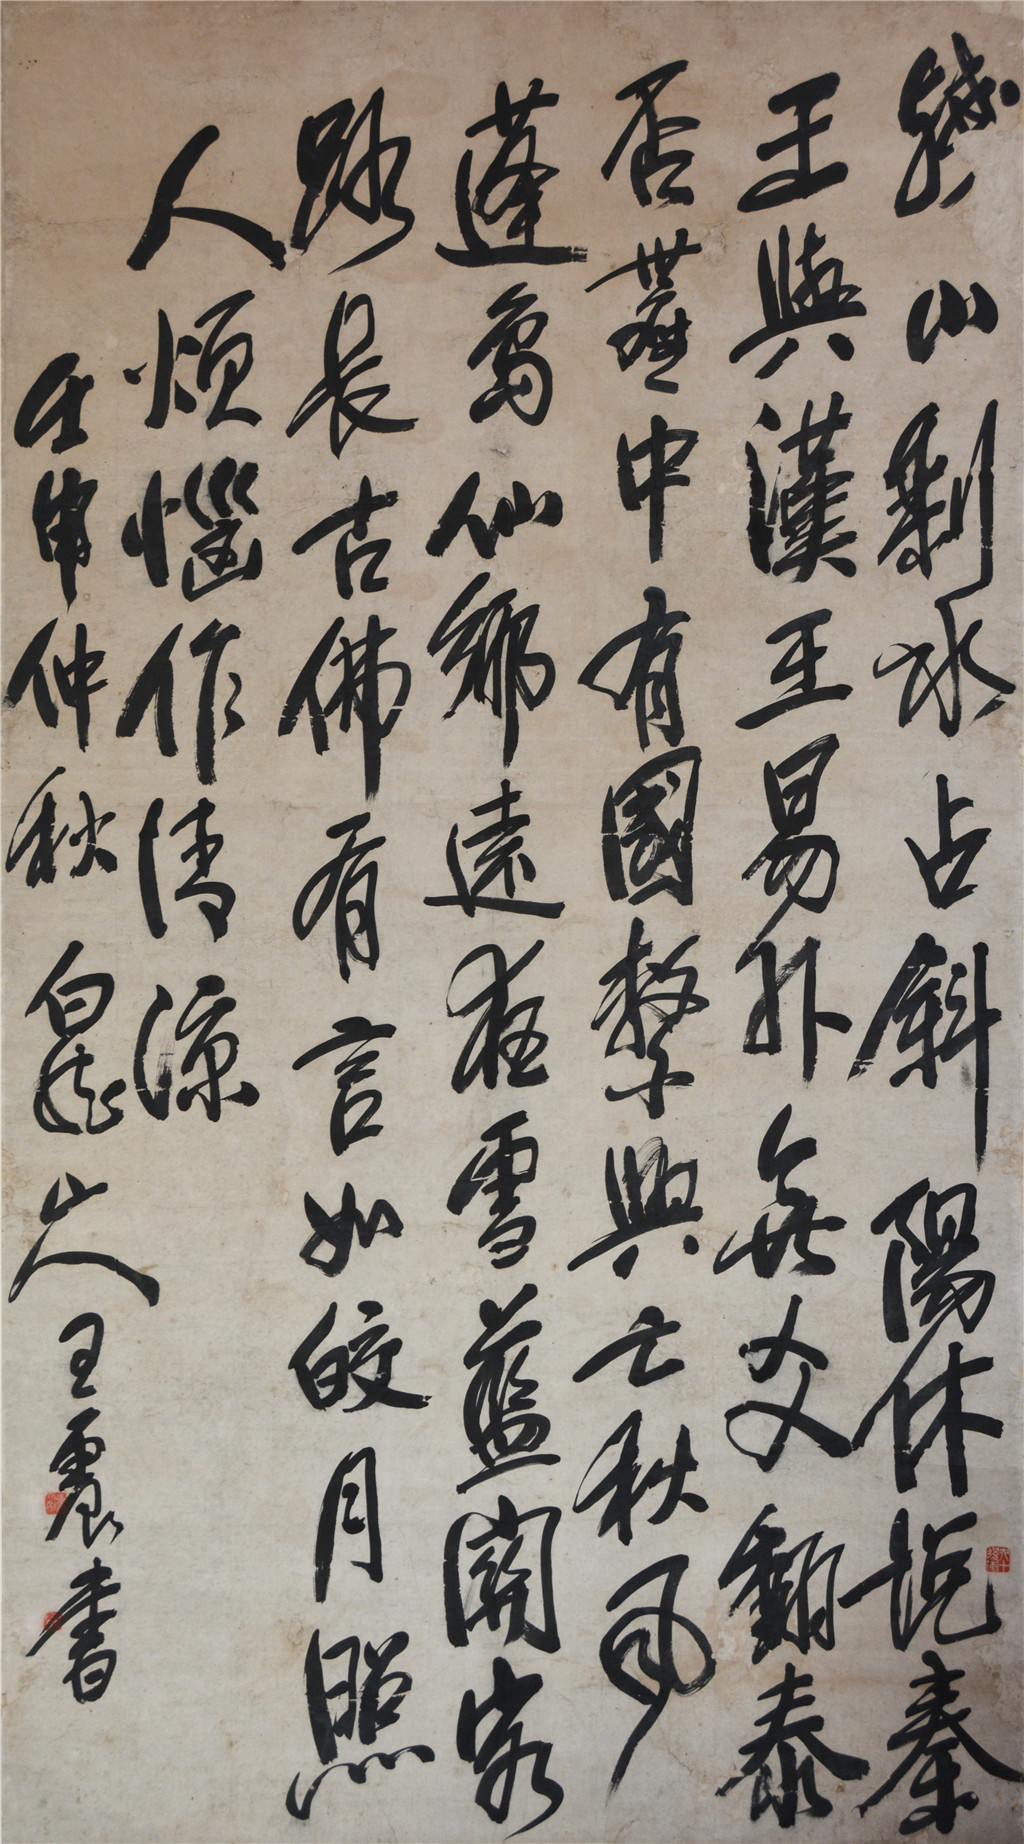 殘山剩水占斜陽休說秦
王與漢王易卦無爻翻泰
否中有國繫興亡秋風
蓬島仙鄉遠狂雪藍關客
路長古佛有言如皎月照
人煩惱作清涼
壬申仲秋白龍山人王震書